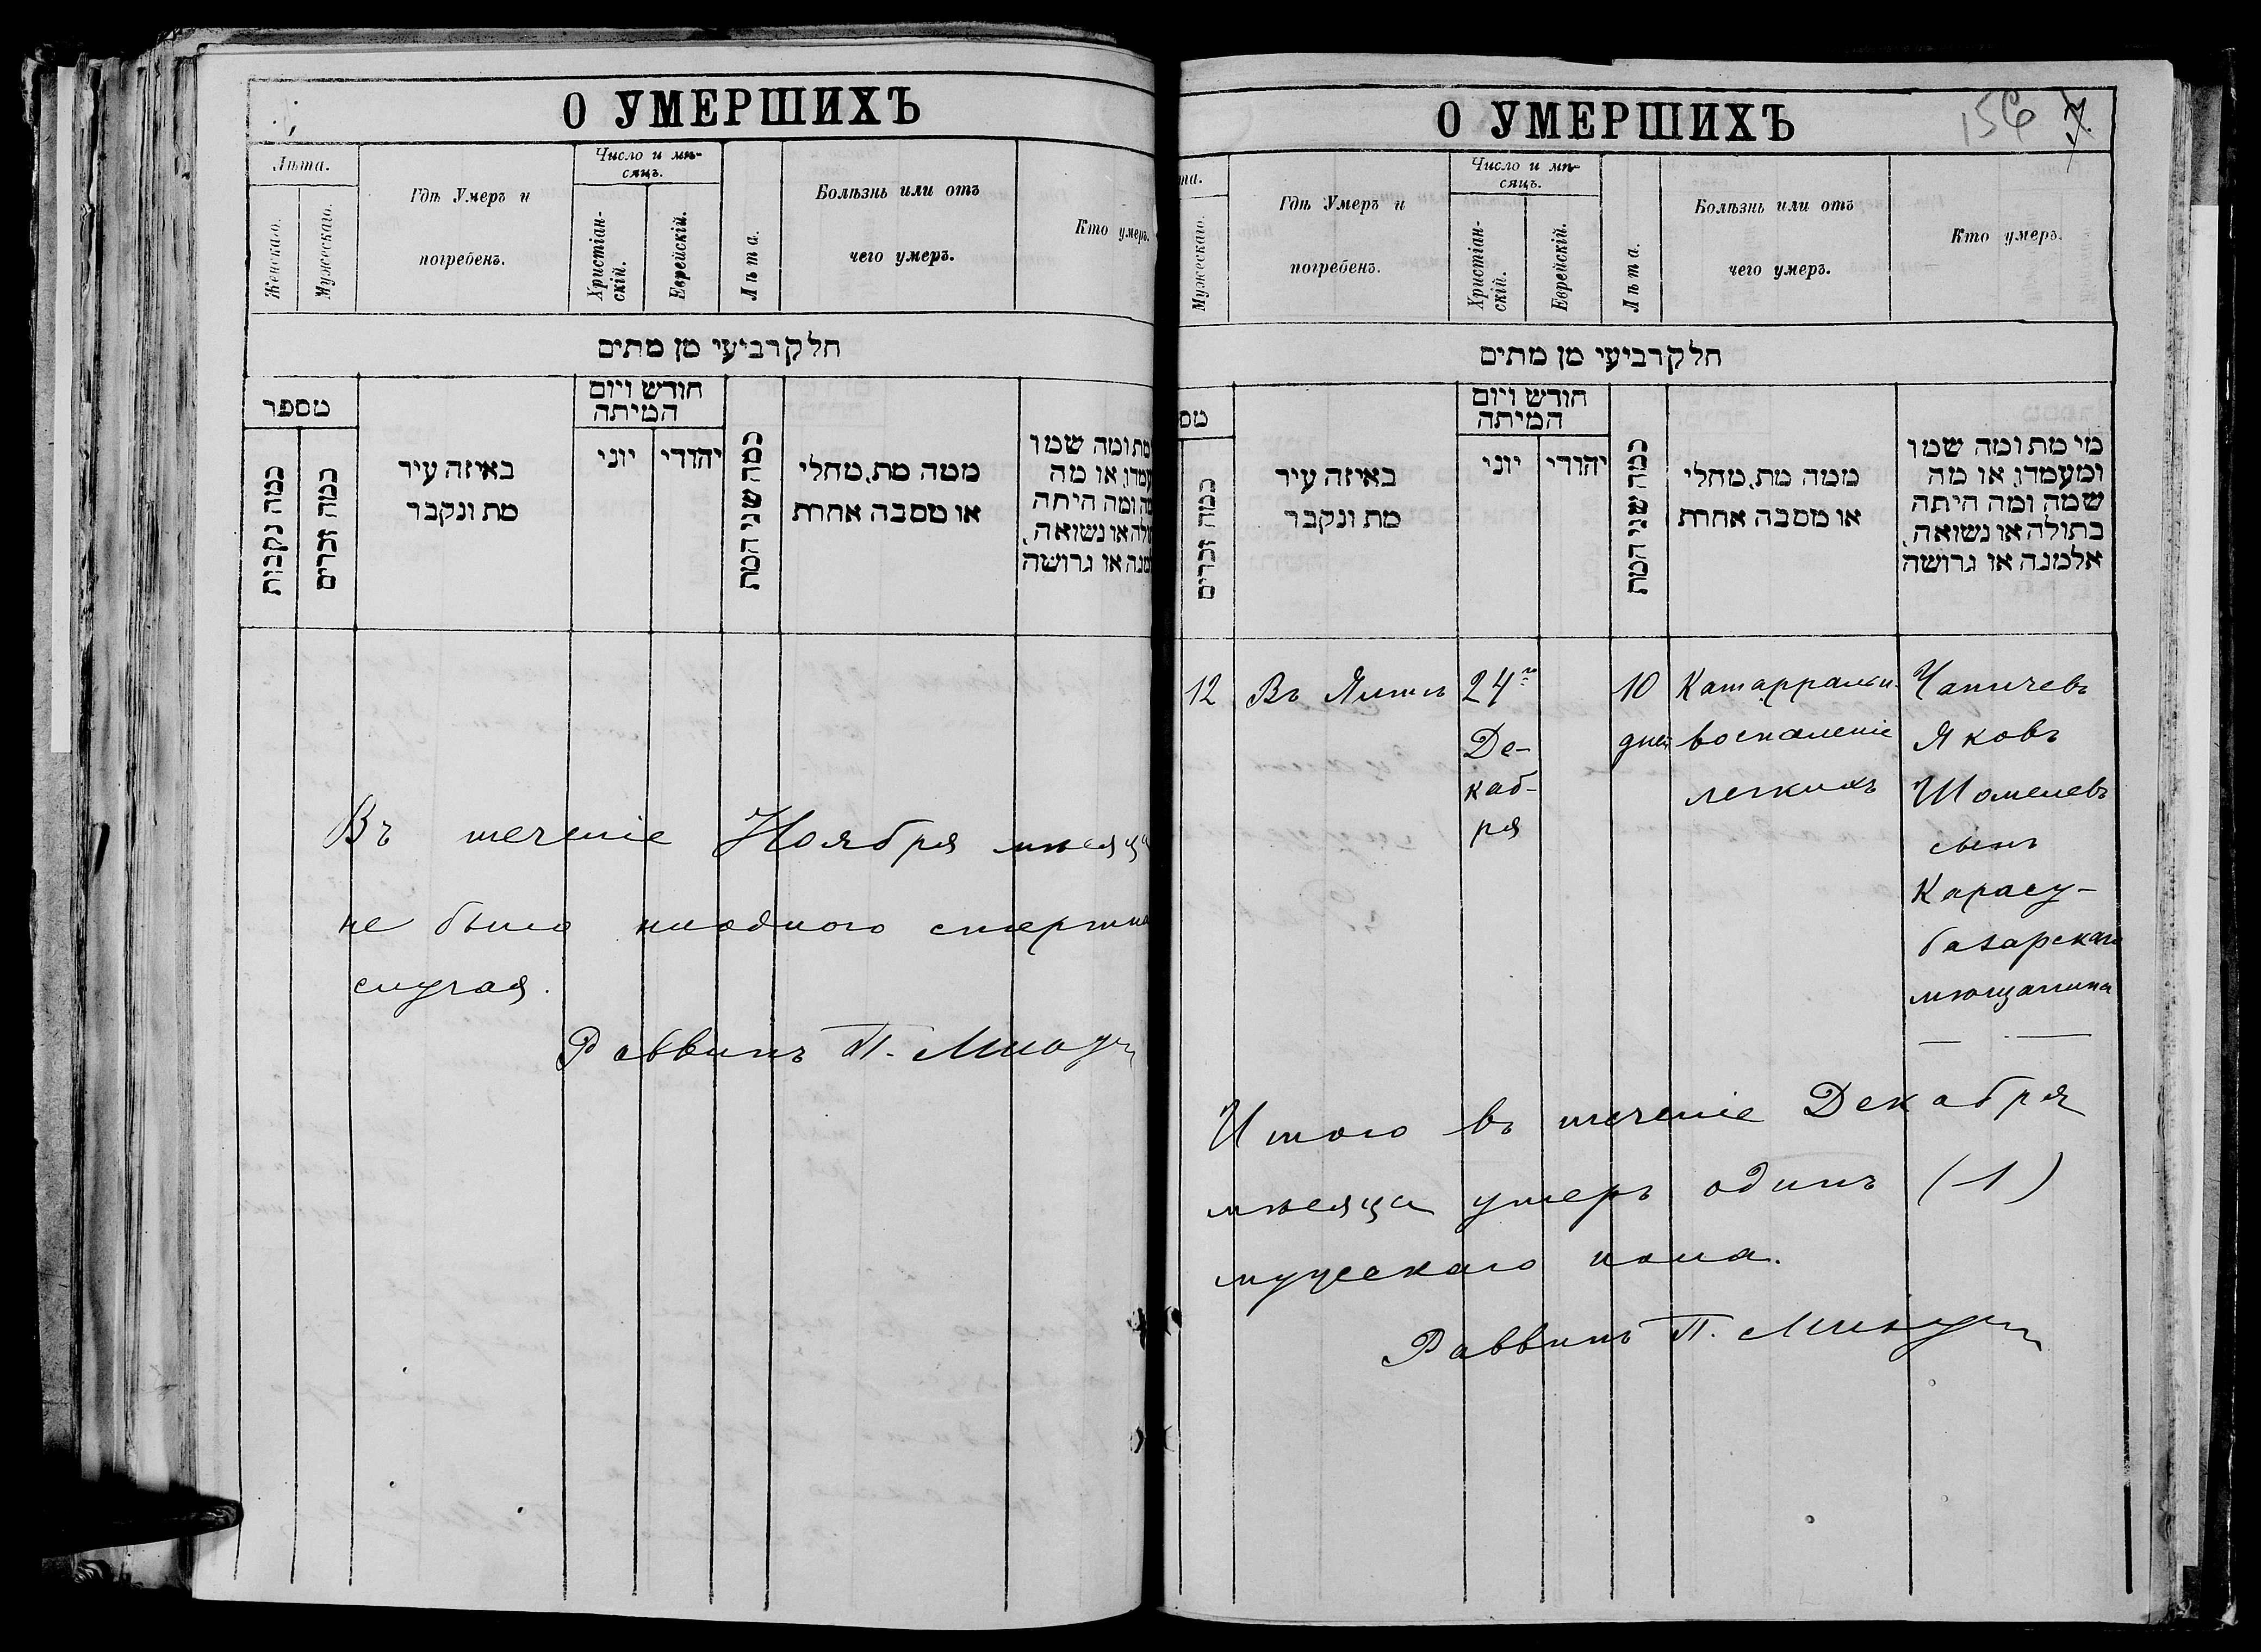 О УМЕРШИХЪ
Лѣта.
Женскаго.
Мужескаго.
Гдѣ Умеръ и
погребенъ.
Число и мѣ-
сяцъ.
Христіан-
скій.
Еврейскій.
Лѣта.
Болѣзнь или отъ
чего умеръ.
Кто умеръ.
חלק רביעי מן מתים
מספר
כמה נקבות
כמה זכרים
באיזה עיר
מת ונקבר
חודש ויום
המיתה
יוני
יהודי
כמה שני המת
ממה מת, מחלי
או מסבה אחרת
מת ומה שמו
עמדו, או מה
מה ומה היתה
ולה או נשואה,
מנה או גרושה
Въ теченіе Ноября мѣсяца
не было ниодного смертна
случая.
Раввинъ П.
О УМЕРШИХЪ
156
7.
та.
Мужескаго.
Гдѣ Умеръ и
погребенъ.
Число и мѣ-
сяцъ.
Христіан-
скій.
Еврейскій.
Лѣта.
Болѣзнь или отъ
чего умеръ.
Кто умеръ.
חלק רביעי מן מתים
מס
כמה זכרים
באיזה עיר
מת ונקבר
חודש ויום
המיתה
יוני
יהודי
כמה שני המת
ממה מת, מחלי
או מסבה אחרת
מי מת ומה שמו
ומעמדו, או מה
שמה ומה היתה
בתולה או נשואה,
אלמנה או גרושה
12 Въ Ялтѣ 24го 10 Катарральн. Чапичевъ
Де- дней воспаленіе Яковъ
каб- легкихъ Шомелевъ
ря сынъ
Карасу-
базарскаго
мѣщанина
Итого въ теченіе Декабря
мѣсяца умеръ одинъ (1)
мужескаго пола.
Раввинъ П.